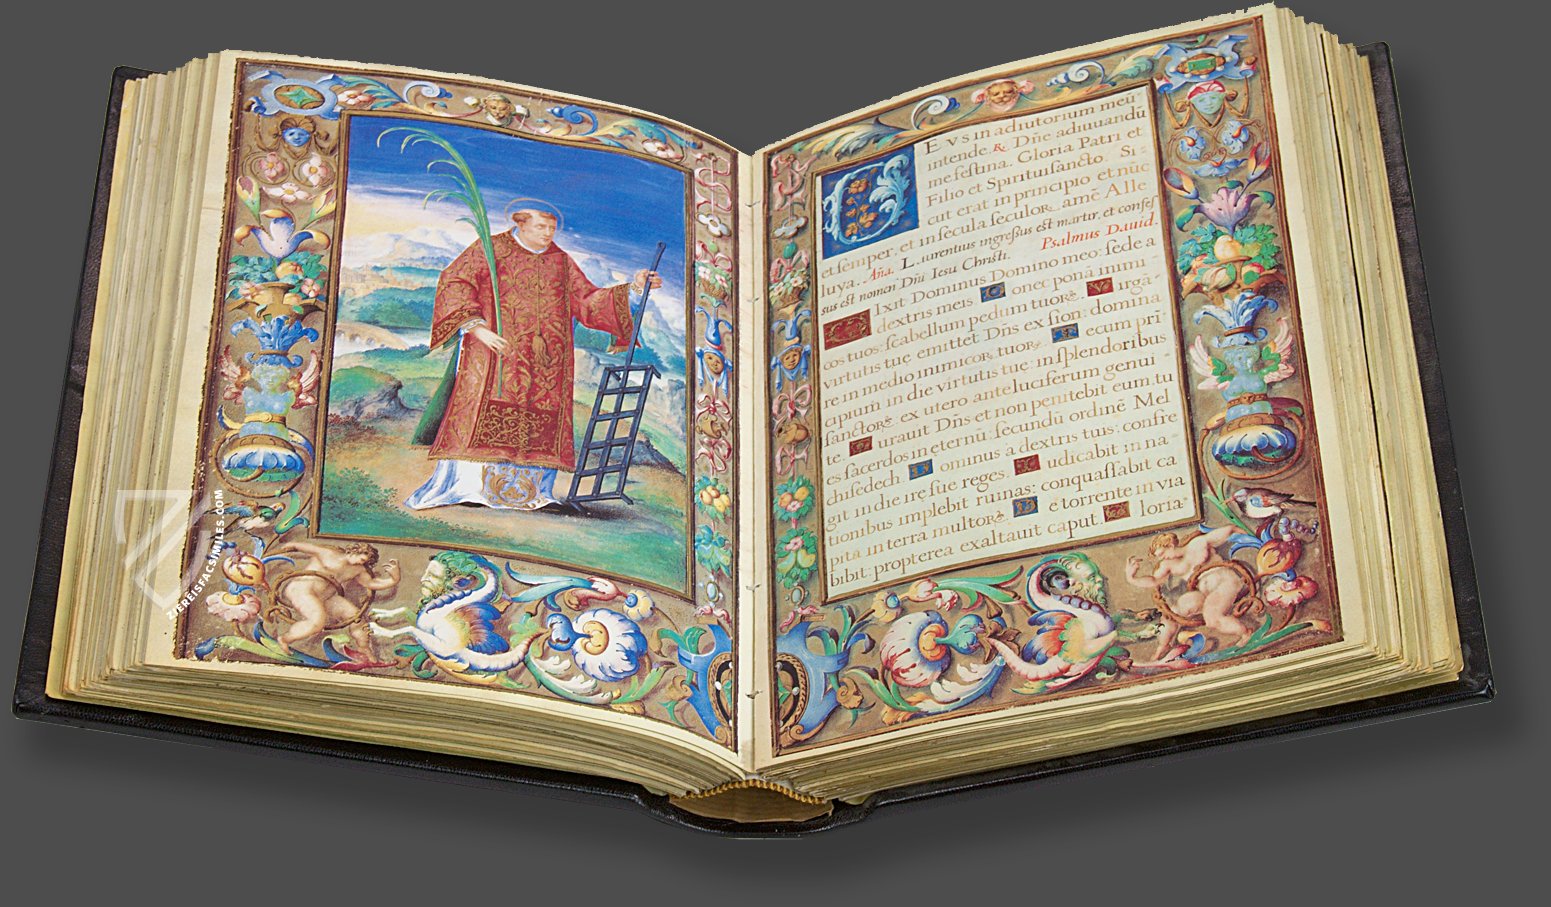 ZIEREISFACSIMILES.COM
DEVS in adiutorium meū
intende. R. Dn̄e adiuuandū
me festina. Gloria Patri et
Filio et Spirituisancto. Si
cut erat in principio et nūc
et semper, et in secula seculoꝝ. amē Alle
luya. Aña. Laurentius ingressus est martir, et confes
sus est nomen Dn̄i Iesu Christi. Psalmus Dauid.
DIxit Dominus Domino meo: sede a
dextris meis. Donec ponā inimi
cos tuos: scabellum pedum tuoꝝ. Virgā
virtutis tue emittet Dn̄s ex sion: domina
re in medio inimicoꝝ tuoꝝ. Tecum pri
cipium in die virtutis tue: in splendoribus
sanctoꝝ ex utero ante luciferum genui
te. Iurauit Dn̄s et non penitebit eum: tu
es sacerdos in eternū: secundū ordinē Mel
chisedech. Dominus a dextris tuis: confre
git in die ire sue reges. Iudicabit in na
tionibus implebit ruinas: conquassabit ca
pita in terra multoꝝ. De torrente in via
bibit: propterea exaltauit caput. Gloria